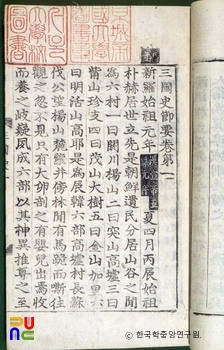 三國史節要卷第一
新羅始祖元年 夏四月丙辰始祖
朴赫居世立先是朝鮮遺民分居山谷之間
為六村一曰閼川楊山二曰突山高墟三曰
觜山珍支四曰茂山大樹五曰金山加里六
曰明活山高耶是為 高墟村長蘇
伐公望楊山麓蘿井傍林間有馬跪而嘶往
觀之忽不見只有大卵剖之有嬰兒出焉收
而養之岐嶷夙成六部以其神異推尊之至
한국학중앙연구원